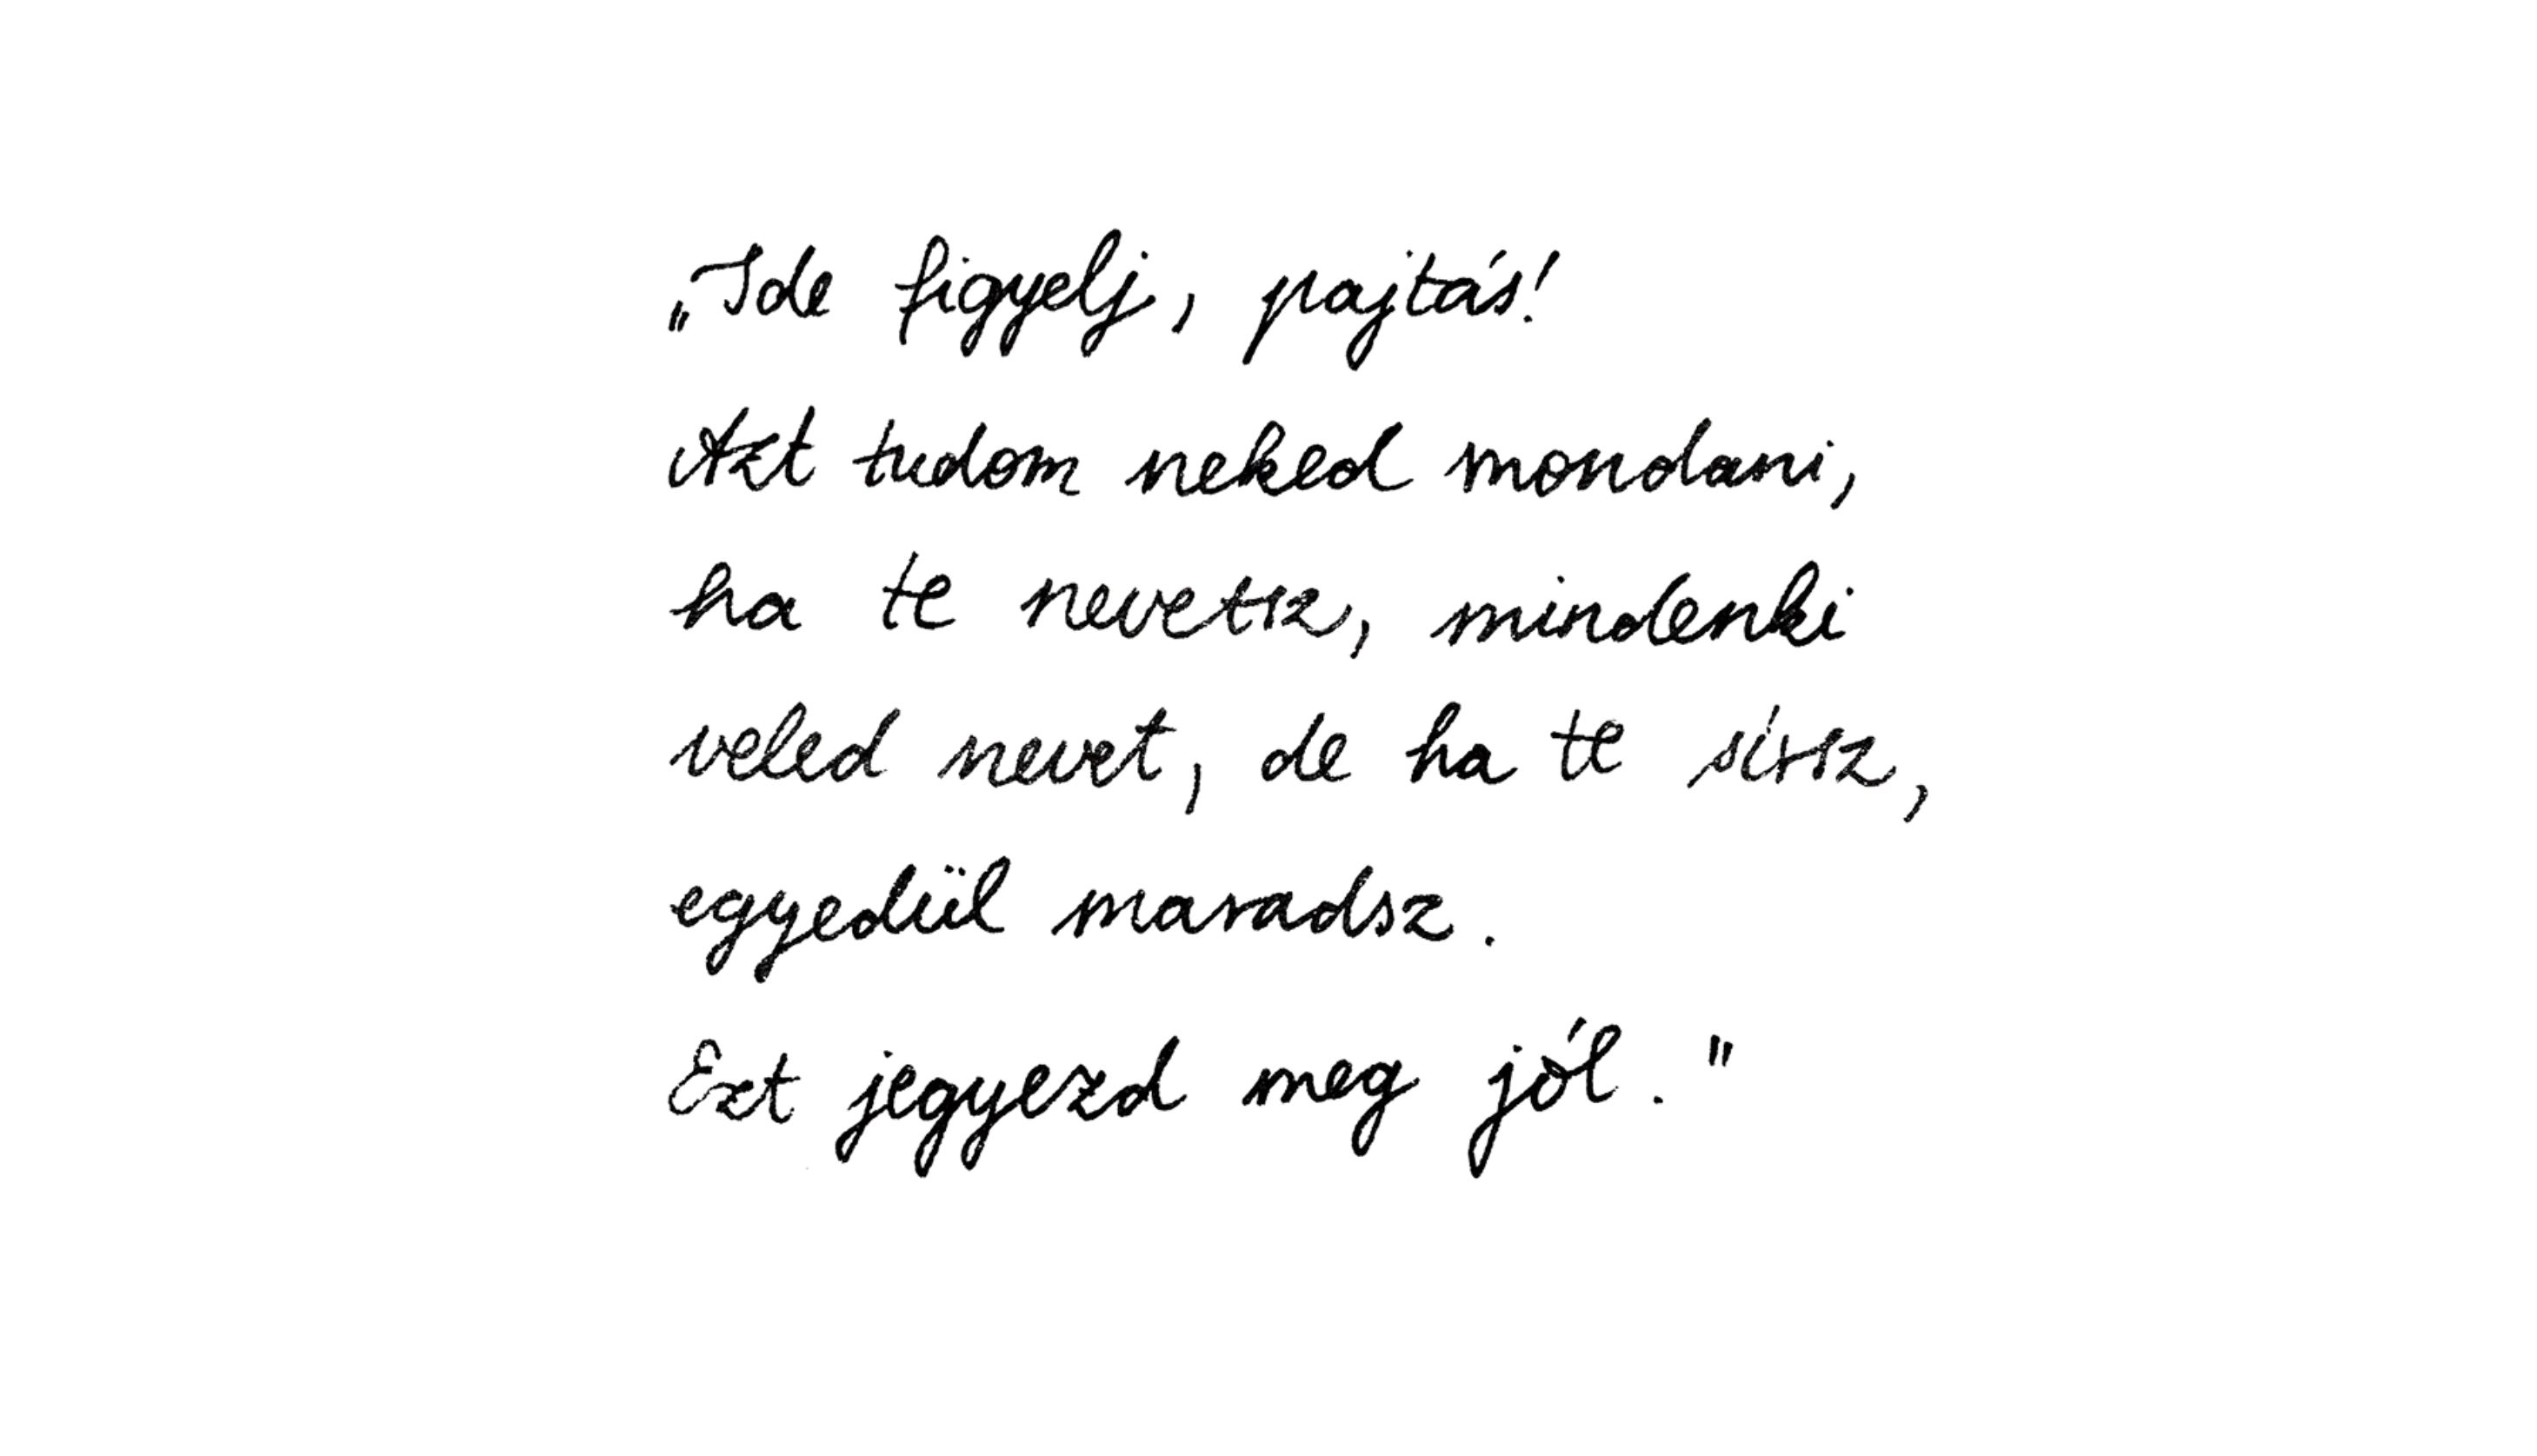 „Ide figyelj, pajtás!
Azt tudom neked mondani,
ha te nevetsz, mindenki
veled nevet, de ha te sírsz,
egyedül maradsz.
Ezt jegyezd meg jól."